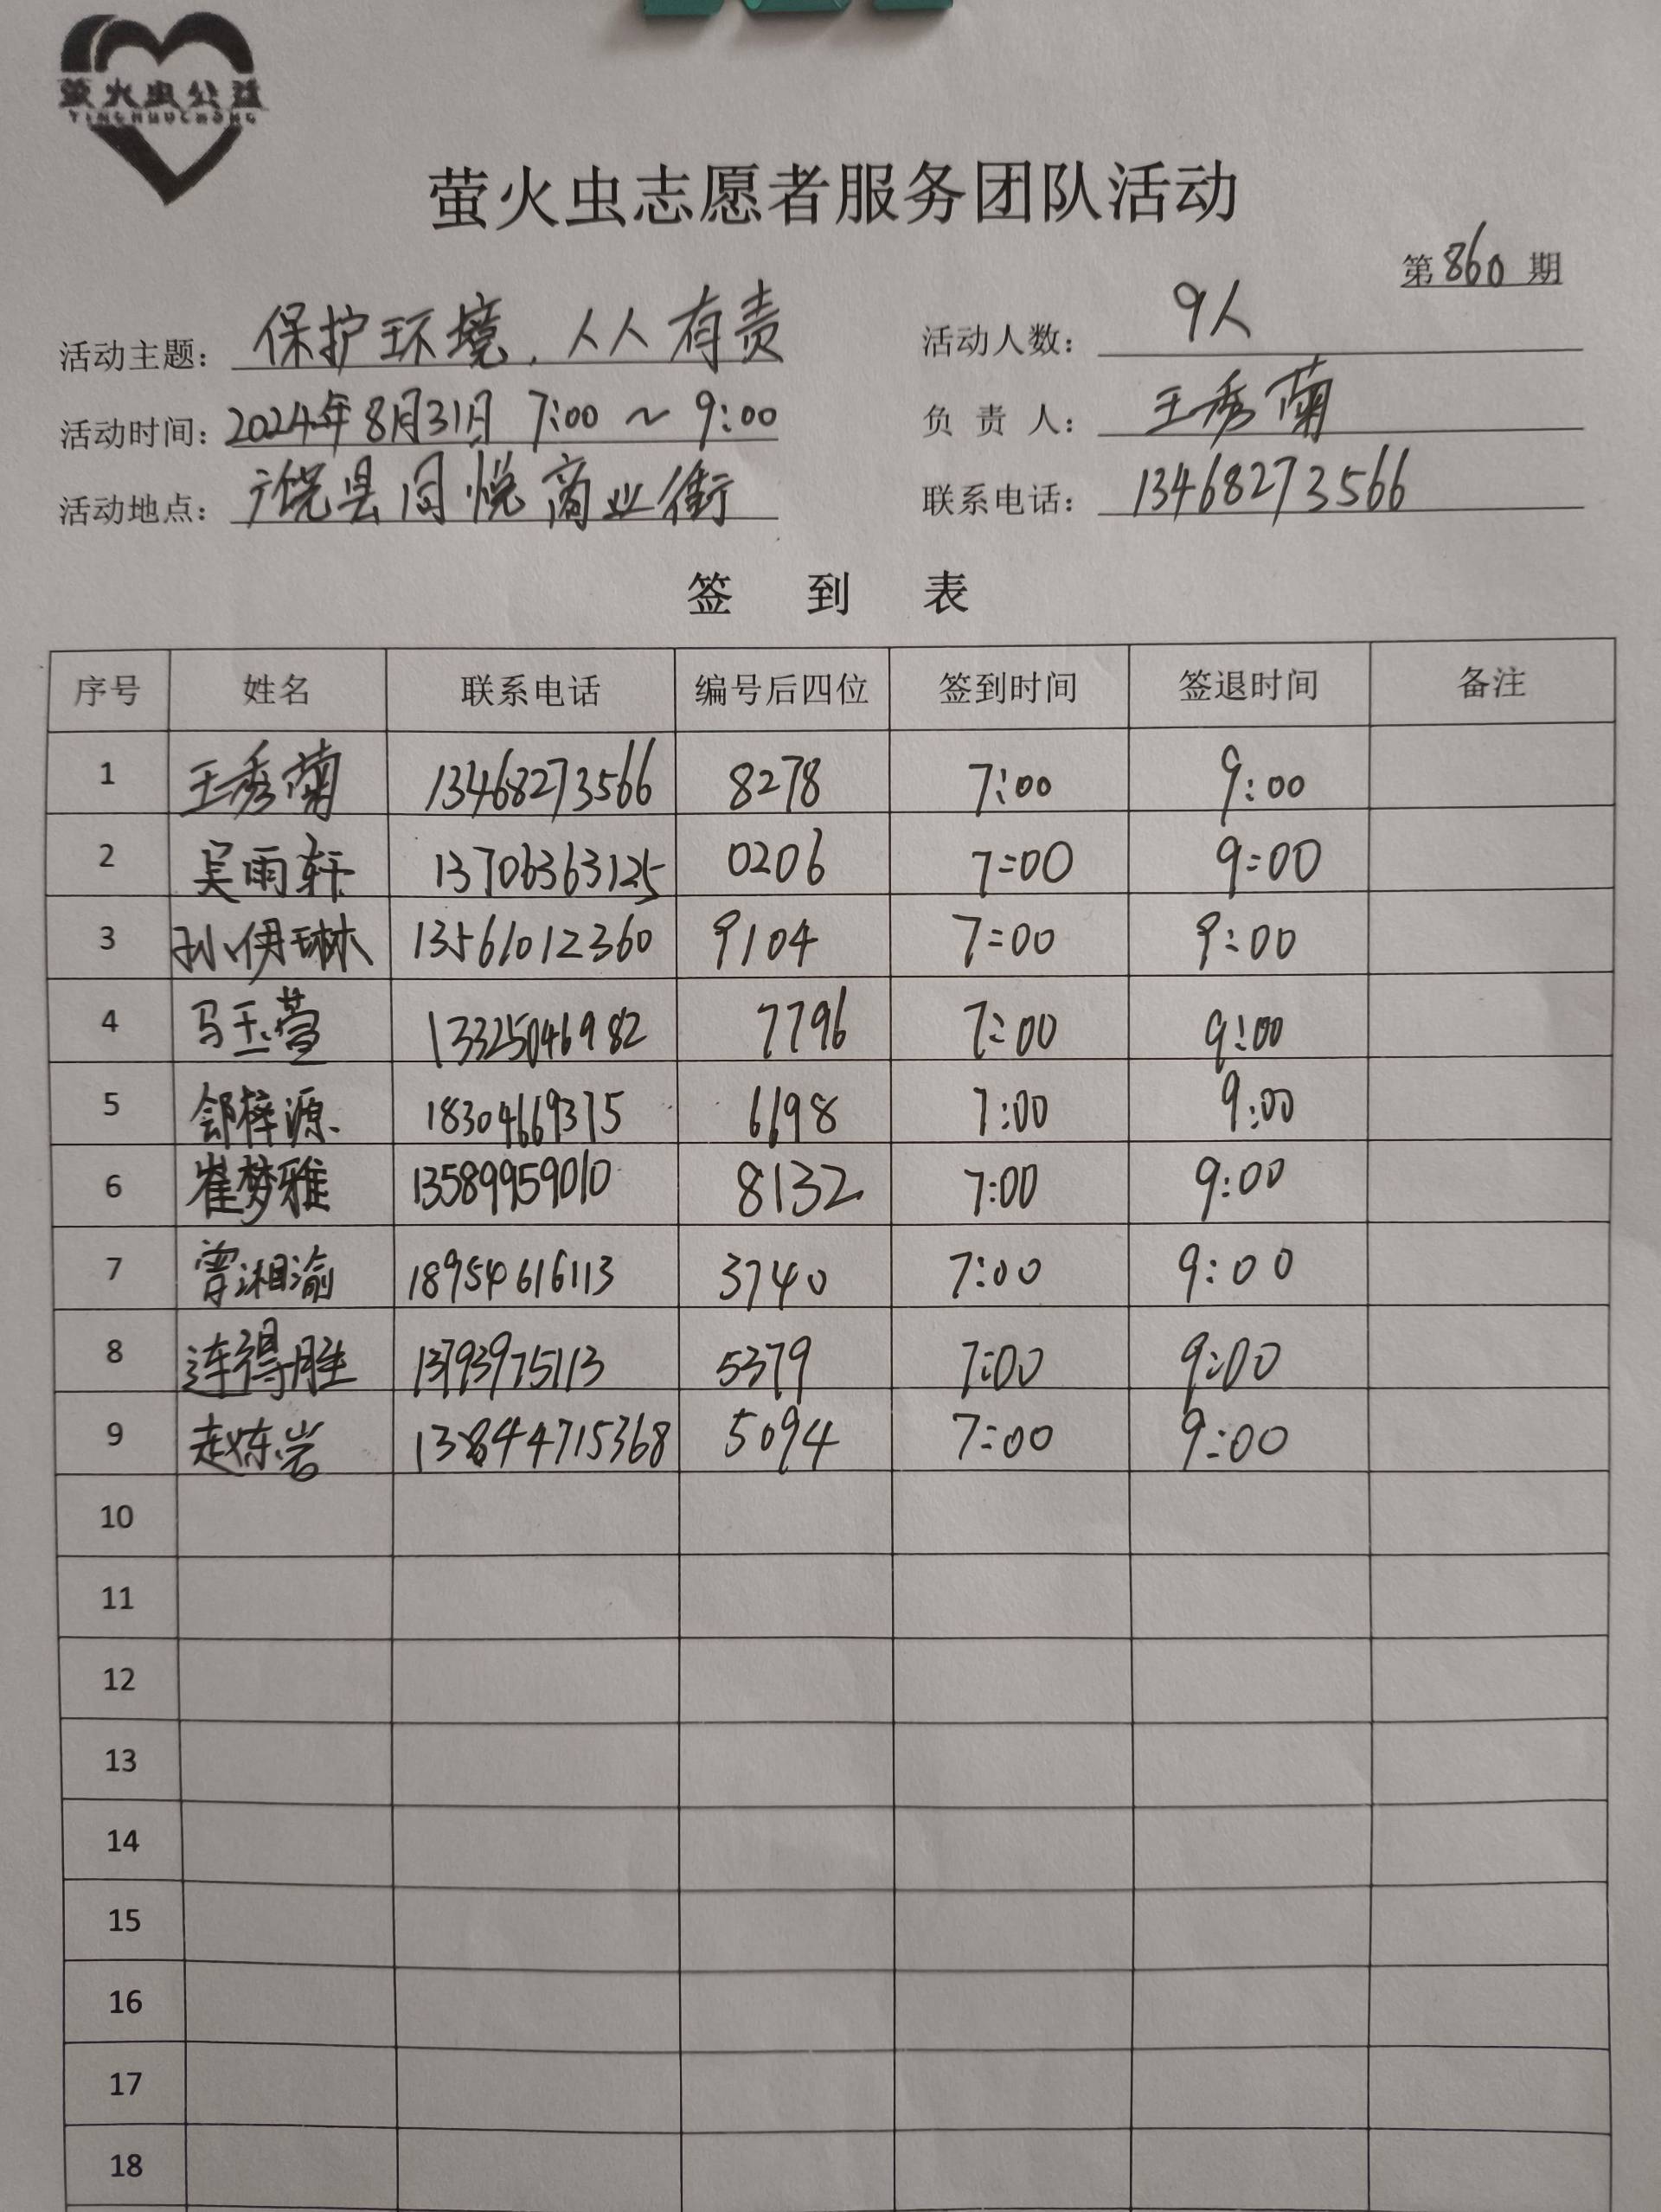 萤火虫公益
YINGHUOCHONG
萤火虫志愿者服务团队活动
第860期
活动主题: 保护环境,人人有责 活动人数: 9人
活动时间: 2024年8月31日 7:00 ~ 9:00 负责人: 王秀菊
活动地点: 广饶县同悦商业街 联系电话: 13468273566
签到表
序号 姓名 联系电话 编号后四位 签到时间 签退时间 备注
1 王秀菊 13468273566 8278 7:00 9:00
2 吴雨轩 13706363125 0206 7:00 9:00
3 孙伊琳 13561012360 9104 7:00 9:00
4 马玉莹 13325046982 7796 7:00 9:00
5 梓源 18304669375 6198 7:00 9:00
6 崔梦雅 13589959010 8132 7:00 9:00
7 曾湘渝 18954616113 3740 7:00 9:00
8 连得胜 13793975113 5379 7:00 9:00
9 赵炼岩 5094 7:00 9:00
10
11
12
13
14
15
16
17
18